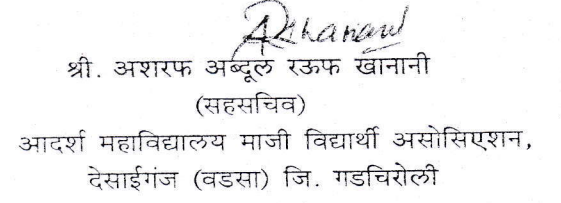 श्री. अशरफ अब्दूल रऊफ खानानी
(सहसचिव)
आदर्श महाविद्यालय माजी विद्यार्थी असोसिएशन,
देसाईगंज (वडसा) जि. गडचिरोली